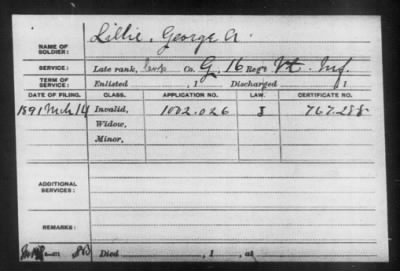 Lillie, George A.
NAME OF SOLDIER:
SERVICE: Late rank, Corp Co. G, 16 Reg't Vt. Inf.
TERM OF SERVICE: Enlisted , 1 Discharged , 1
DATE OF FILING. CLASS. APPLICATION NO. LAW. CERTIFICATE NO.
1891 Mch 14 Invalid, 1002.026 767.288
Widow,
Minor,
ADDITIONAL SERVICES:
REMARKS:
Died , 1 , at